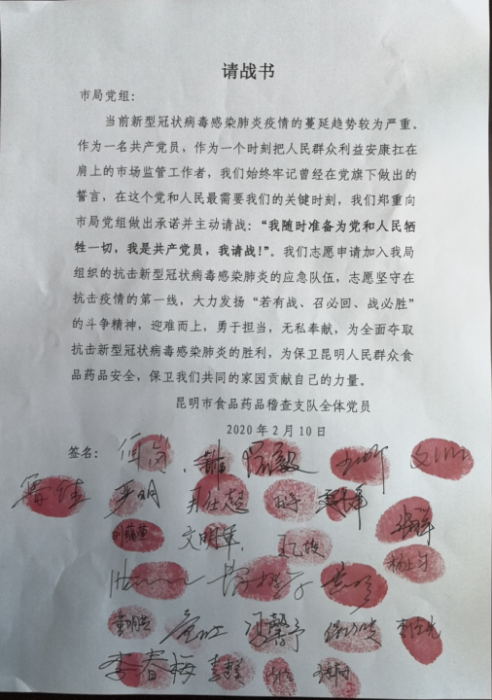 请战书
市局党组：
当前新型冠状病毒感染肺炎疫情的蔓延趋势较为严重。
作为一名共产党员，作为一个时刻把人民群众利益安康扛在
肩上的市场监管工作者，我们始终牢记曾经在党旗下做出的
誓言，在这个党和人民最需要我们的关键时刻，我们郑重向
市局党组做出承诺并主动请战：“我随时准备为党和人民牺
牲一切，我是共产党员，我请战！”。我们志愿申请加入我局
组织的抗击新型冠状病毒感染肺炎的应急队伍，志愿坚守在
抗击疫情的第一线，大力发扬“若有战、召必回、战必胜”
的斗争精神，迎难而上，勇于担当，无私奉献，为全面夺取
抗击新型冠状病毒感染肺炎的胜利，为保卫昆明人民群众食
品药品安全，保卫我们共同的家园贡献自己的力量。
昆明市食品药品稽查支队全体党员
2020年2月10日
签名：
文明章
李春梅